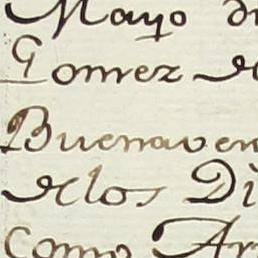 Mayo di
Gomez de
Buenaven
de los Di
como Ar